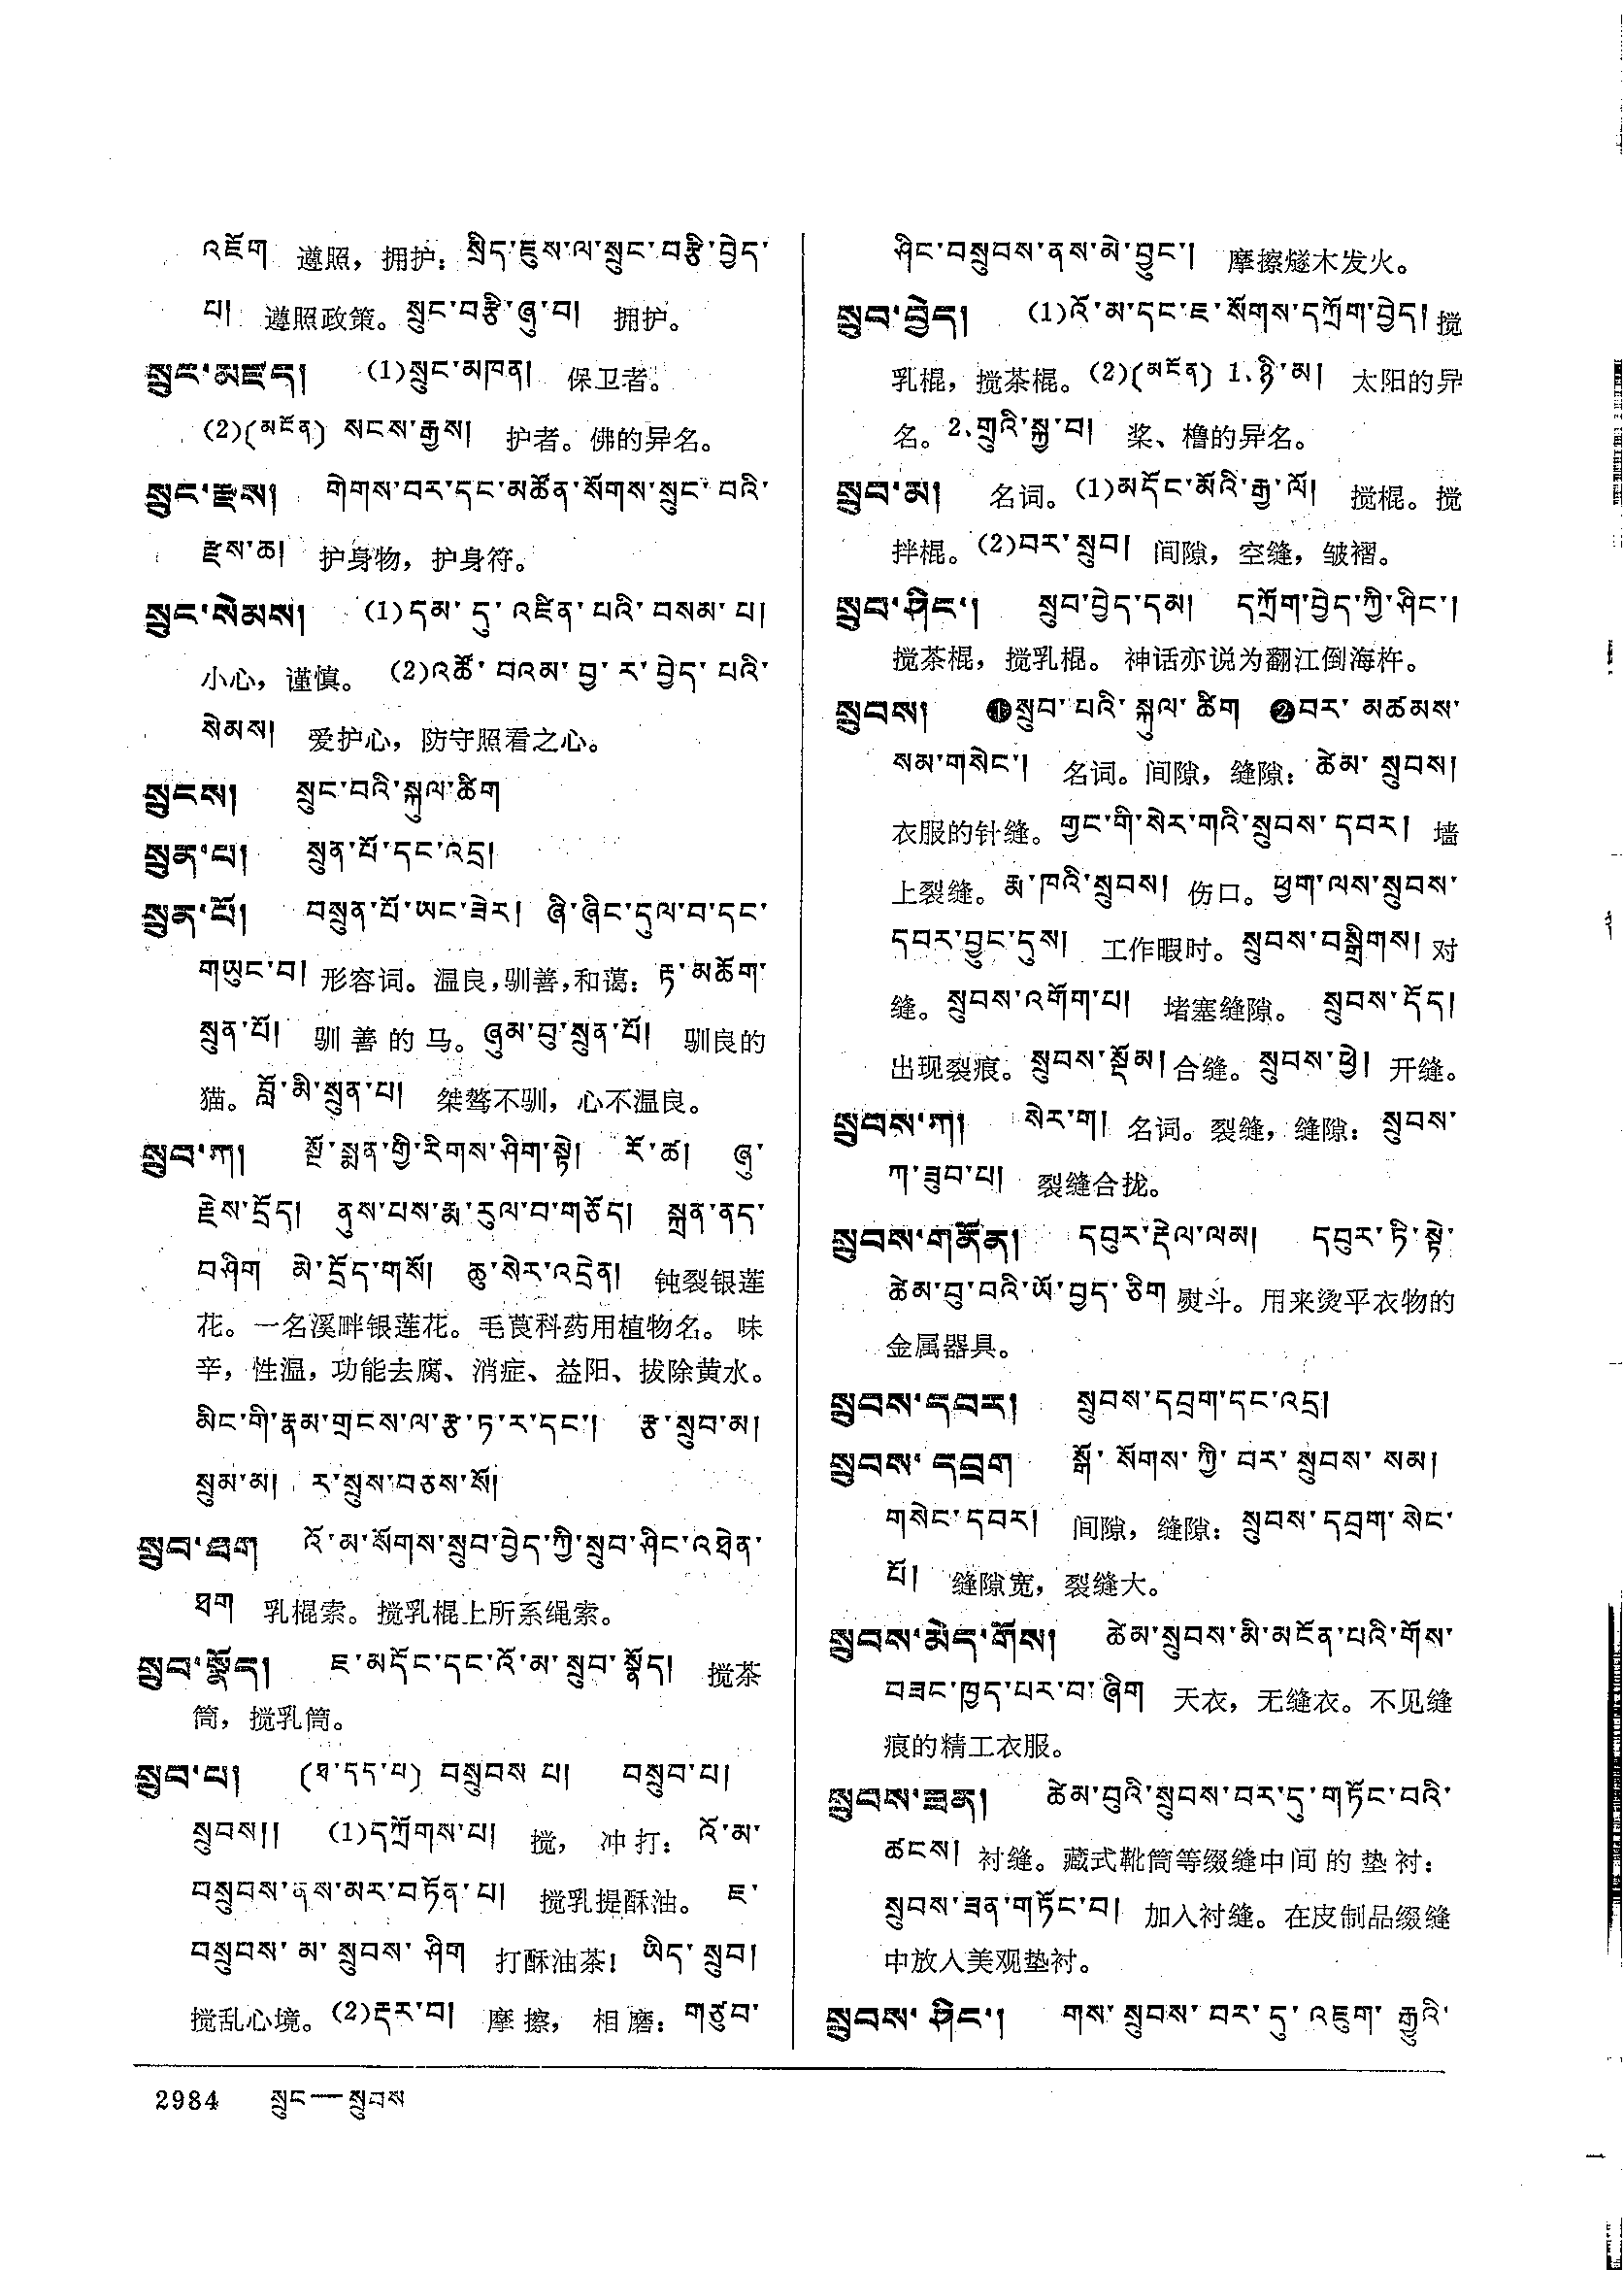 འཇོག 遵照，拥护：སྲིད་ཇུས་ལ་སྲུང་བརྩི་བྱེད་
པ། 遵照政策。སྲུང་བརྩི་ཞུ་བ། 拥护。
སྲུང་མཛད། (1)སྲུང་མཁན། 保卫者。
(2)(མངོན) སངས་རྒྱས། 护者。佛的异名。
སྲུང་རྫས། གེགས་བར་དང་མཚོན་སོགས་སྲུང་བའི་
རྫས་ཆ། 护身物，护身符。
སྲུང་སེམས། (1)དམ་དུ་འཛིན་པའི་བསམ་པ།
小心，谨慎。 (2)འཚོ་བའམ་བྱ་ར་བྱེད་པའི་
སེམས། 爱护心，防守照看之心。
སྲུངས། སྲུང་བའི་སྐུལ་ཚིག
སྲུན་པ། སྲུན་པོ་དང་འདྲ།
སྲུན་པོ། བསྲུན་པོ་ཡང་ཟེར། ཞི་ཞིང་དུལ་བ་དང་
གཡུང་བ། 形容词。温良，驯善，和蔼：རྟ་མཆོག་
སྲུན་པོ། 驯善的马。ཞུམ་བུ་སྲུན་པོ། 驯良的
猫。བློ་མི་སྲུན་པ། 桀骜不驯，心不温良。
སྲུབ་ཀ། སྔོ་སྨན་གྱི་རིགས་ཤིག་སྟེ། རོ་ཚ། ཞུ་
རྗེས་དྲོད། ནུས་པས་རྨ་རུལ་བ་གཅོད། སྐྲན་ནད་
བཤིག མེ་དྲོད་གསོ། ཆུ་སེར་འདྲེན། 钝裂银莲
花。一名溪畔银莲花。毛茛科药用植物名。味
辛，性温，功能去腐、消症、益阳、拔除黄水。
མིང་གི་རྣམ་གྲངས་ལ་རྩ་ཏ་ར་དང་། རྩ་སྲུབ་མ།
སྲུམ་མ། ར་སྲུས་བཅས་སོ།
སྲུབ་ཐག འོ་མ་སོགས་སྲུབ་བྱེད་ཀྱི་སྲུབ་ཤིང་འཐེན་
ཐག 乳棍索。搅乳棍上所系绳索。
སྲུབ་སྣོད། ཇ་མདོང་དང་འོ་མ་སྲུབ་སྣོད། 搅茶
筒，搅乳筒。
སྲུབ་པ། (ཐ་དད་པ) བསྲུབས་པ། བསྲུབ་པ།
སྲུབས།། (1)དཀྲོགས་པ། 搅，冲打：འོ་མ་
བསྲུབས་ནས་མར་བཏོན་པ། 搅乳提酥油。 ཇ་
བསྲུབས་མ་སྲུབས་ཤིག 打酥油茶！ཡིད་སྲུབ།
搅乱心境。(2)རྡར་བ། 摩擦，相磨：གཙུབ་
ཤིང་བསྲུབས་ནས་མེ་བྱུང་། 摩擦燧木发火。
སྲུབ་བྱེད། (1)འོ་མ་དང་ཇ་སོགས་དཀྲོག་བྱེད། 搅
乳棍，搅茶棍。(2)(མངོན) 1、ཉི་མ། 太阳的异
名。2、གྲུའི་སྐྱ་བ། 桨、橹的异名。
སྲུབ་མ། 名词。(1)མདོང་མོའི་རྒྱ་ལོ། 搅棍。搅
拌棍。(2)བར་སྲུབ། 间隙，空缝，皱褶。
སྲུབ་ཤིང་། སྲུབ་བྱེད་དམ། དཀྲོག་བྱེད་ཀྱི་ཤིང་།
搅茶棍，搅乳棍。神话亦说为翻江倒海杵。
སྲུབས། ❶སྲུབ་པའི་སྐུལ་ཚིག ❷བར་མཚམས་
སམ་གསེང་། 名词。间隙，缝隙：ཚེམ་སྲུབས།
衣服的针缝。གྱང་གི་སེར་གའི་སྲུབས་དབར། 墙
上裂缝。རྨ་ཁའི་སྲུབས། 伤口。ཕྱག་ལས་སྲུབས་
དབར་བྱུང་དུས། 工作暇时。སྲུབས་བསྒྲིགས། 对
缝。སྲུབས་འགོག་པ། 堵塞缝隙。 སྲུབས་དོད།
出现裂痕。སྲུབས་སྡོམ། 合缝。སྲུབས་ཕྱེ། 开缝。
སྲུབས་ཀ། སེར་ག། 名词。裂缝，缝隙：སྲུབས་
ཀ་ཟུབ་པ། 裂缝合拢。
སྲུབས་གནོན། དབུར་རྡེལ་ལམ། དབུར་ཏི་སྟེ་
ཚེམ་བུ་བའི་ཡོ་བྱད་ཅིག 熨斗。用来烫平衣物的
金属器具。
སྲུབས་དབར། སྲུབས་དབྲག་དང་འདྲ།
སྲུབས་དབྲག སྒོ་སོགས་ཀྱི་བར་སྲུབས་སམ།
གསེང་དབར། 间隙，缝隙：སྲུབས་དབྲག་སེང་
པོ། 缝隙宽，裂缝大。
སྲུབས་མེད་གོས། ཚེམ་སྲུབས་མི་མངོན་པའི་གོས་
བཟང་ཁྱད་པར་བ་ཞིག 天衣，无缝衣。不见缝
痕的精工衣服。
སྲུབས་ཟན། ཚེམ་བུའི་སྲུབས་བར་དུ་གཏོང་བའི་
ཚངས། 衬缝。藏式靴筒等缀缝中间的垫衬：
སྲུབས་ཟན་གཏོང་བ། 加入衬缝。在皮制品缀缝
中放入美观垫衬。
སྲུབས་ཤིང་། གས་སྲུབས་བར་དུ་འཇུག་རྒྱུའི་
2984 སྲུང—སྲུབས